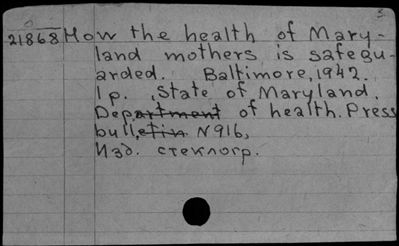 3.
21868 How the health of Mary-
land mothers is safegu-
arded. Baltimore, 1942.
1 p. State of Maryland.
Department of health. Press
bulletin N 916,
Изд. стеклогр.